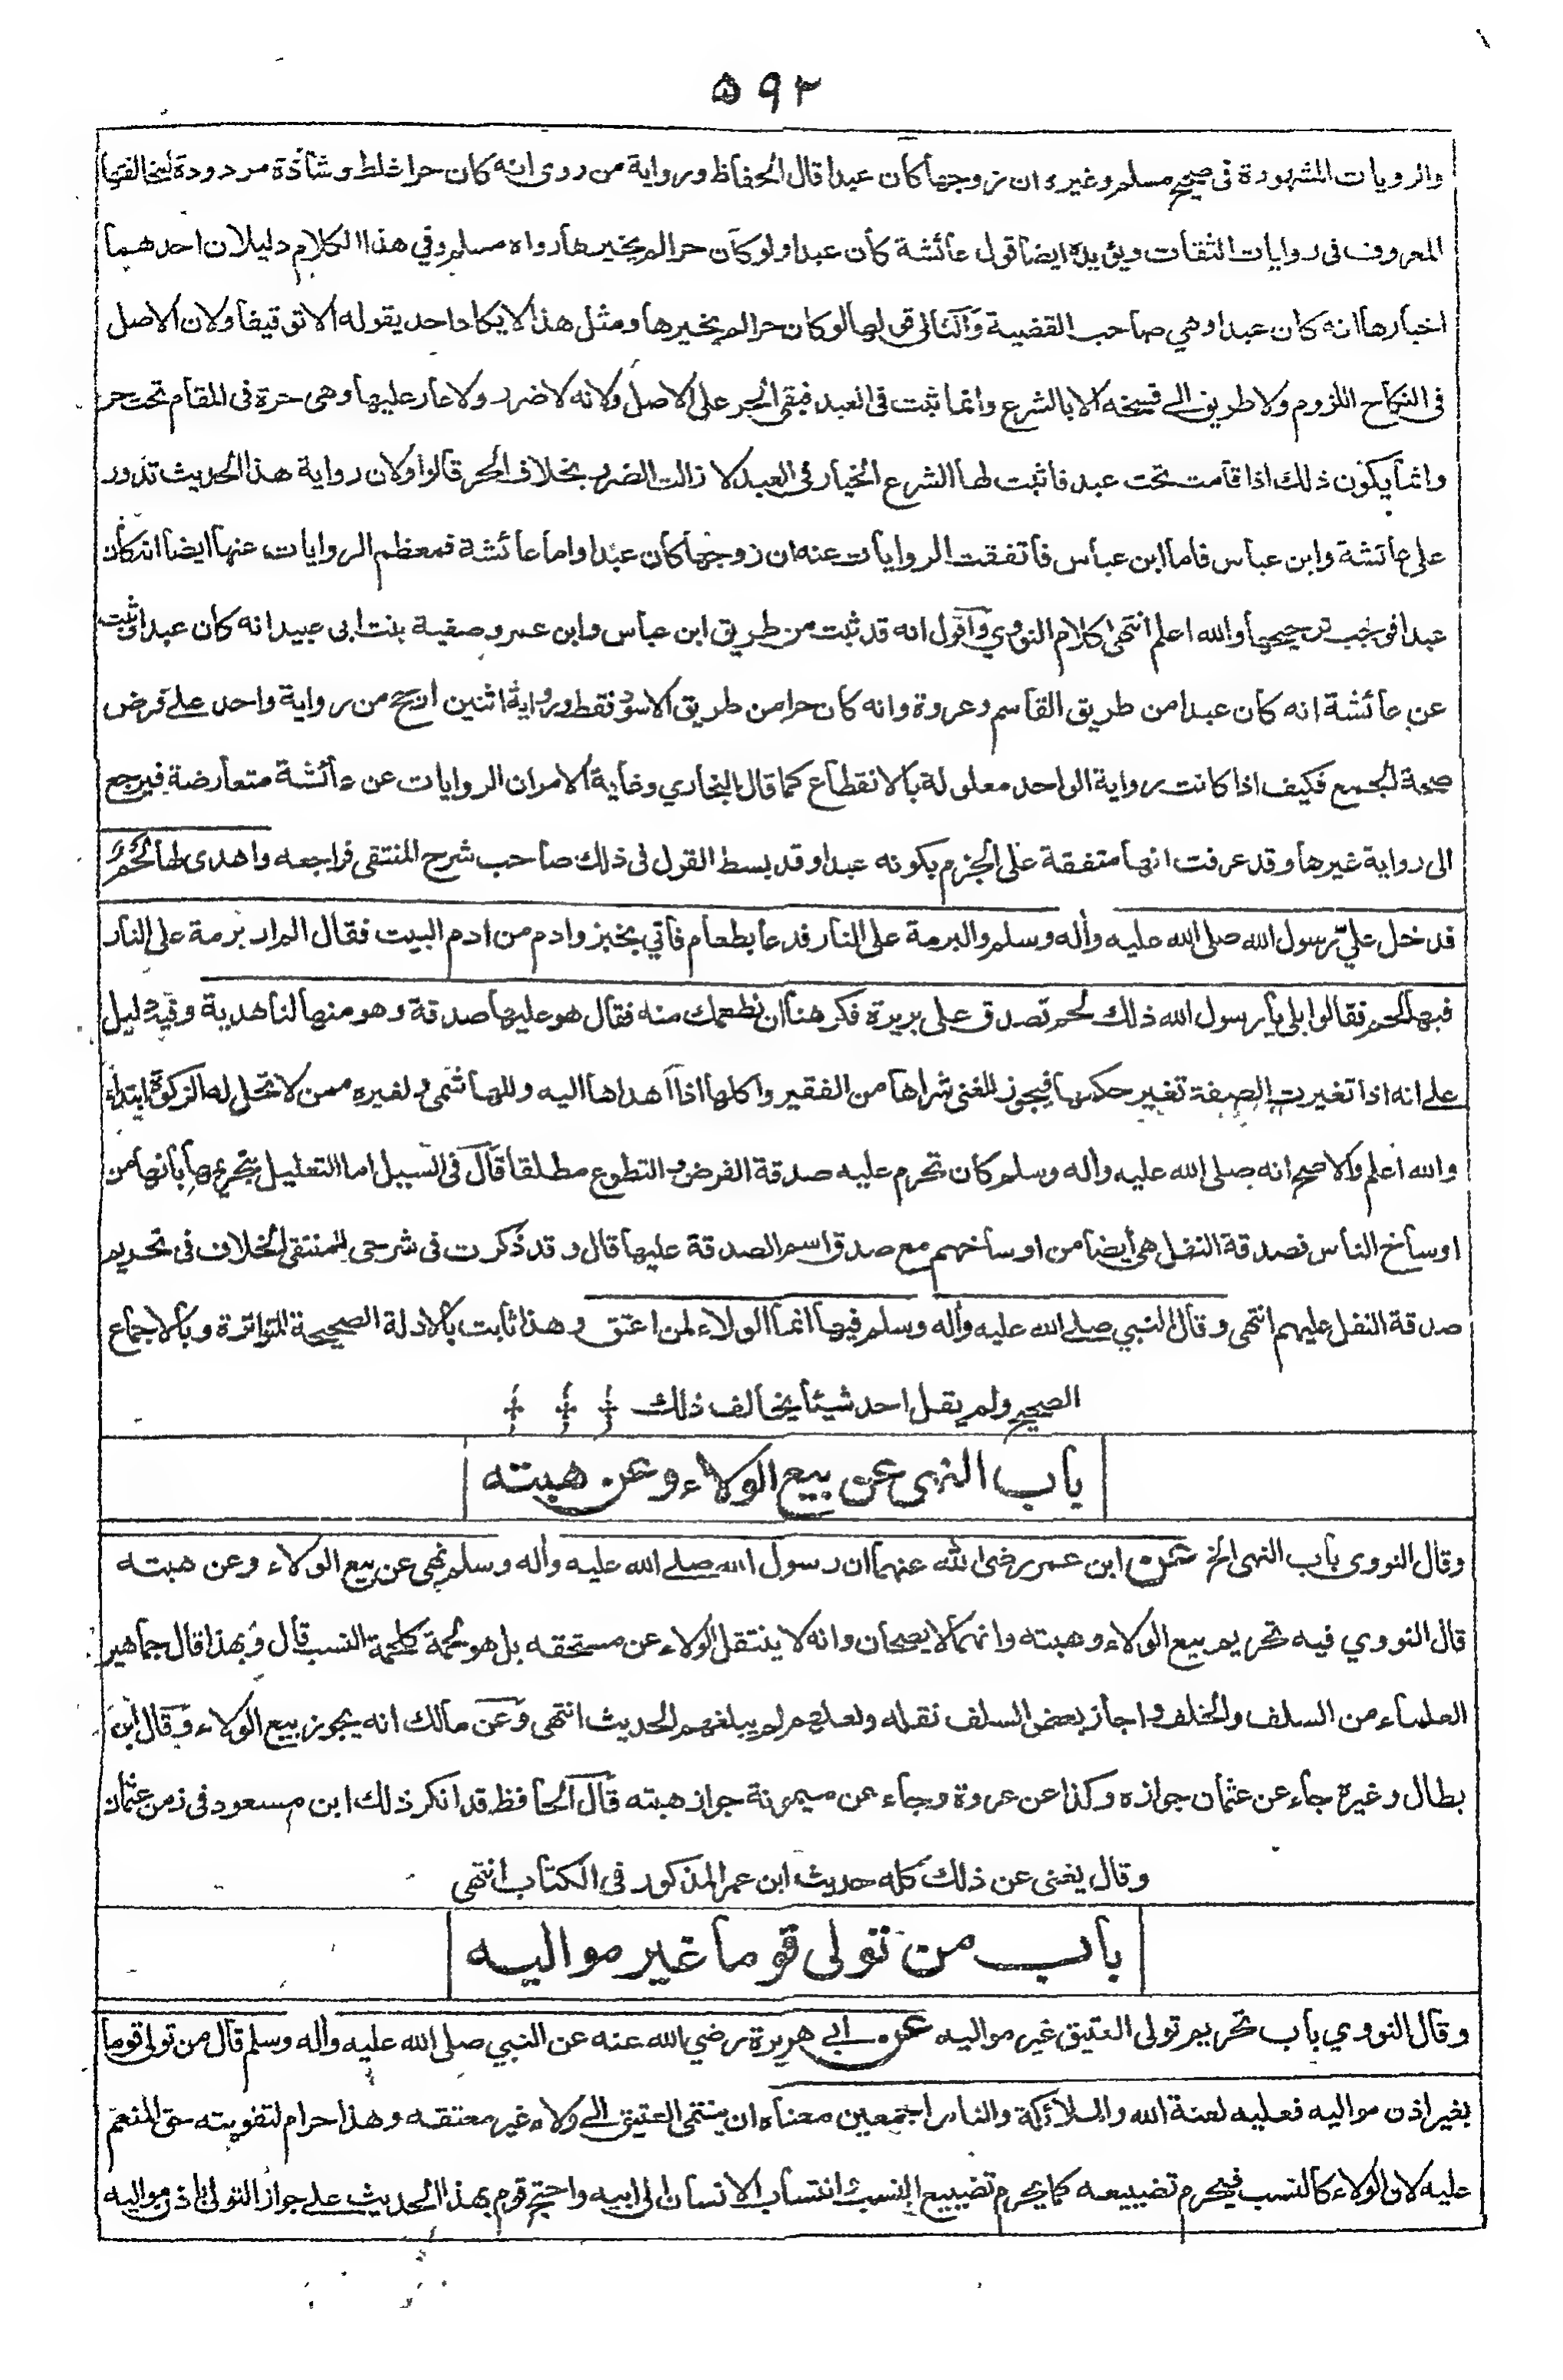 ۵۹۲
والرويات المشهورة فى صحيح مسلم وغيره ان زوجها كان عبدا قال الحفاظ ورواية من روى انه كان حرا غلط وشاذة مردودة لمخالفتها
المعروف فى روايات الثقات ويؤيده ايضا قول عائشة كان عبدا ولو كان حرا لم يخيرها رواه مسلم وفي هذا الكلام دليلان احدهما
اخبارها انه كان عبدا وهي صاحب القضية والثانى قولها لو كان حرا لم يخيرها ومثل هذا لا يكاد احد يقوله الا توقيفا ولان الاصل
فى النكاح اللزوم ولا طريق الى فسخه الا بالشرع وانما ثبت فى العبد فبقى الحر على الاصل ولانه لا ضرر ولا عار عليها وهى حرة فى المقام تحت حر
وانما يكون ذلك اذا قامت تحت عبد فاثبت لها الشرع الخيار فى العبد لازالت الضرر بخلاف الحر قالوا ولان رواية هذا الحديث تدور
على عائشة وابن عباس فاما ابن عباس فاتفقت الروايات عنه ان زوجها كان عبدا واما عائشة فمعظم الروايات عنها ايضا انه كان
عبدا فوجب ترجيحها والله اعلم انتهى كلام النووي واقول انه قد ثبت من طريق ابن عباس وابن عمر وصفية بنت ابى عبيد انه كان عبدا وثبت
عن عائشة انه كان عبدا من طريق القاسم وعروة وانه كان حرا من طريق الاسود فقط ورواية اثنين ارجح من رواية واحد على فرض
صحة الجمع فكيف اذا كانت رواية الواحد معلولة بالانقطاع كما قال البخاري وغاية الامر ان الروايات عن عائشة متعارضة فيرجع
الى رواية غيرها وقد عرفت انها متفقة على الجزم بكونه عبدا وقد بسط القول فى ذلك صاحب شرح المنتقى فراجعه واهدى لها لحم
فدخل علي رسول الله صلى الله عليه واله وسلم والبرمة على النار فدعا بطعام فاتي بخبز وادم من ادم البيت فقال الم ار برمة على النار
فيها لحم فقالوا بلى يا رسول الله ذلك لحم تصدق على بريرة فكرهنا ان نطعمك منه فقال هو عليها صدقة وهو منها لنا هدية وفيه دليل
على انه اذا تغيرت الصفة تغير حكمها فيجوز للغنى شراها من الفقير واكلها اذا اهداها اليه وللهاشمى ولغيره ممن لا تحل له الزكوة ابتداء
والله اعلم والاصح انه صلى الله عليه واله وسلم كان تحرم عليه صدقة الفرض والتطوع مطلقا قال فى السبيل اما التعليل بتحريمها بانها من
اوساخ الناس فصدقة النفل هى ايضا من اوساخهم مع صدق اسم الصدقة عليها قال وقد ذكرت فى شرحى للمنتقى الخلاف فى تحريم
صدقة النفل عليهم انتهى وقال النبي صلى الله عليه واله وسلم فيها انما الولاء لمن اعتق وهذا ثابت بالادلة الصحيحة المتواترة وبالاجماع
الصحيح ولم يقل احد شيئا يخالف ذلك
باب النهى عن بيع الولاء وعن هبته
وقال النووى باب النهى الخ عن ابن عمر رضى الله عنهما ان رسول الله صلى الله عليه واله وسلم نهى عن بيع الولاء وعن هبته
قال النووي فيه تحريم بيع الولاء وهبته وانهما لا يصحان وانه لا ينتقل الولاء عن مستحقه بل هو لحمة كلحمة النسب قال وبهذا قال جماهير
العلماء من السلف والخلف واجاز بعض السلف نقله ولعلهم لم يبلغهم الحديث انتهى وعن مالك انه يجوز بيع الولاء وقال ابن
بطال وغيره جاء عن عثمان جوازه وكذا عن عروة وجاء عن ميمونة جواز هبته قال الحافظ قد انكر ذلك ابن مسعود فى زمن عثمان
وقال يغنى عن ذلك كله حديث ابن عمر المذكور فى الكتاب انتهى
باب من تولى قوما غير مواليه
وقال النووي باب تحريم تولى العتيق غير مواليه عن ابي هريرة رضي الله عنه عن النبي صلى الله عليه واله وسلم قال من تولى قوما
بغير اذن مواليه فعليه لعنة الله والملائكة والناس اجمعين معناه ان ينتمى العتيق الى ولاء غير معتقه وهذا حرام لتفويته حق المنعم
عليه لان الولاء كالنسب فيحرم تضييعه كما يحرم تضييع النسب وانتساب الانسان الى ابيه واحتج قوم بهذا الحديث على جواز التولى باذن مواليه